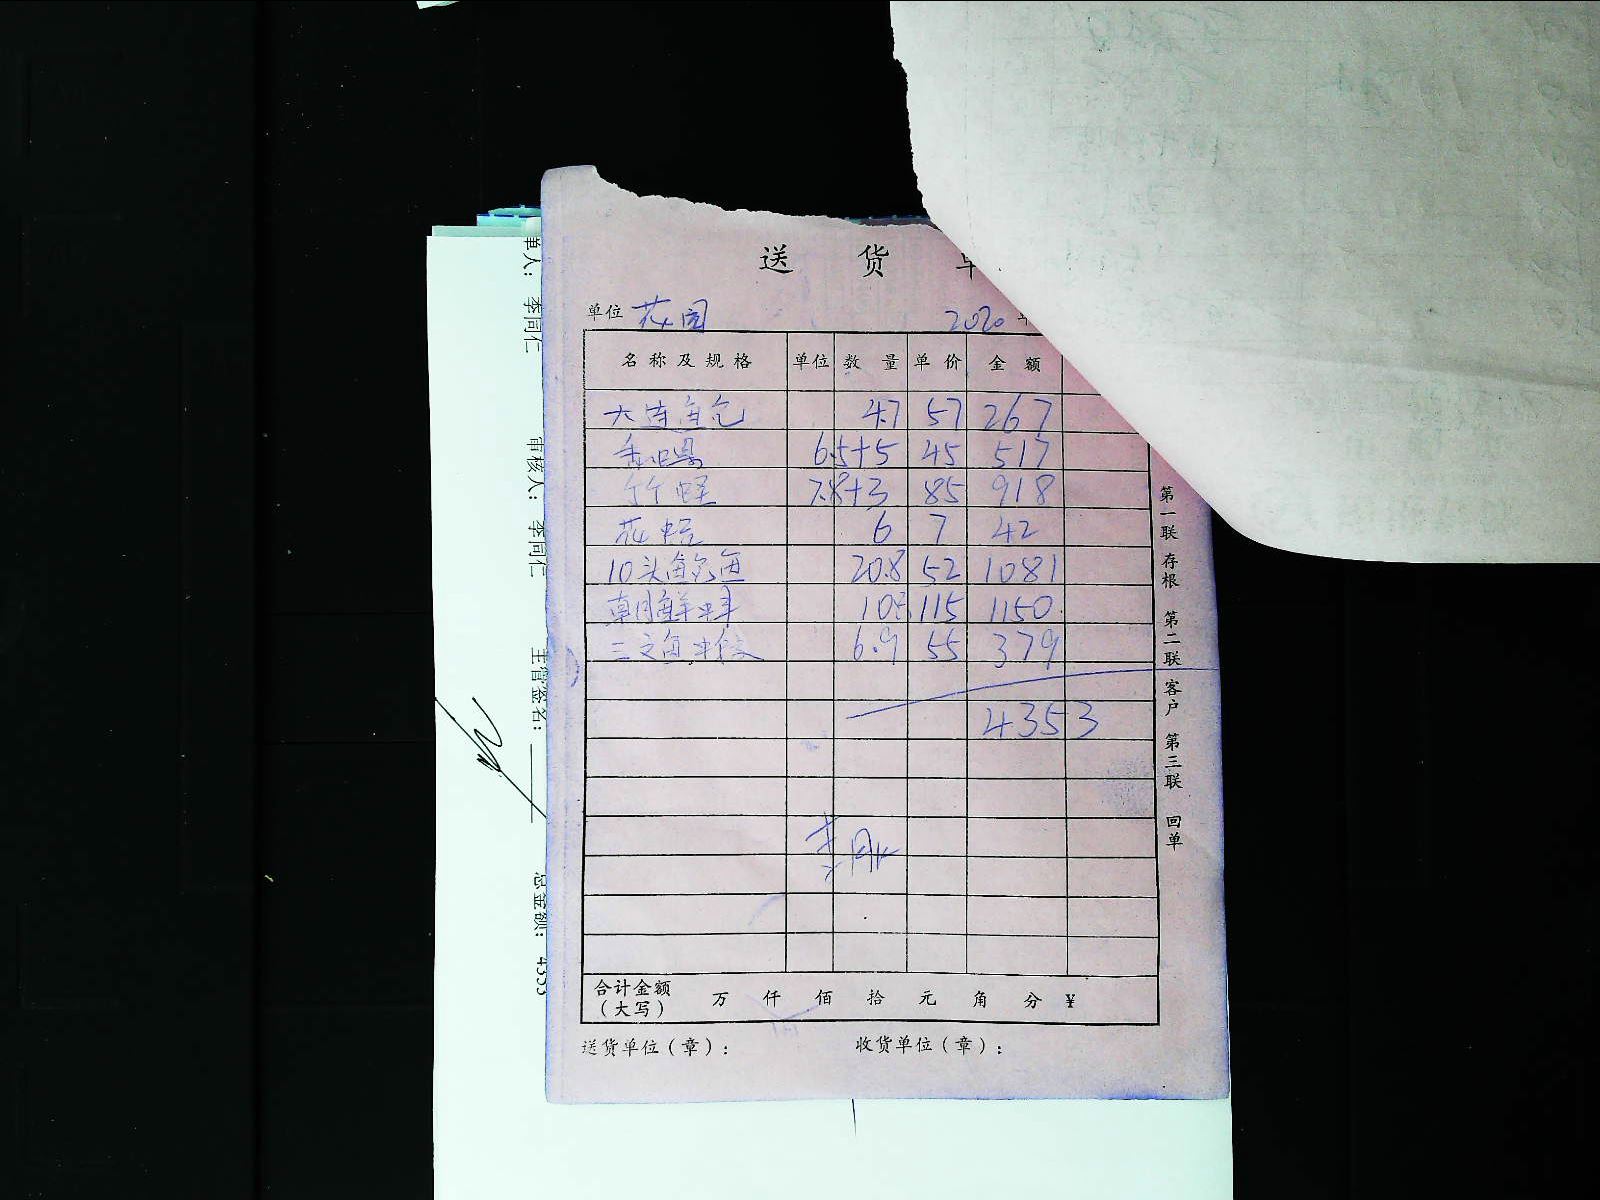 送 货
单位 花园 2020
名称及规格 单位 数量 单价 金额
大连鱼包 4.7 57 267
香螺 6.5+5 45 517
竹蛏 7.8+3 85 918
花蛤 6 7 42
10头鲍鱼 20.8 52 1081
朝鲜蚌 10 115 1150
三文鱼 6.9 55 379
4353
合计金额(大写) 万 仟 佰 拾 元 角 分 ¥
送货单位(章): 收货单位(章):
第一联 存根 第二联 客户 第三联 回单
单人: 李同仁
审核人: 李同仁
主管签名:
总金额: 4353